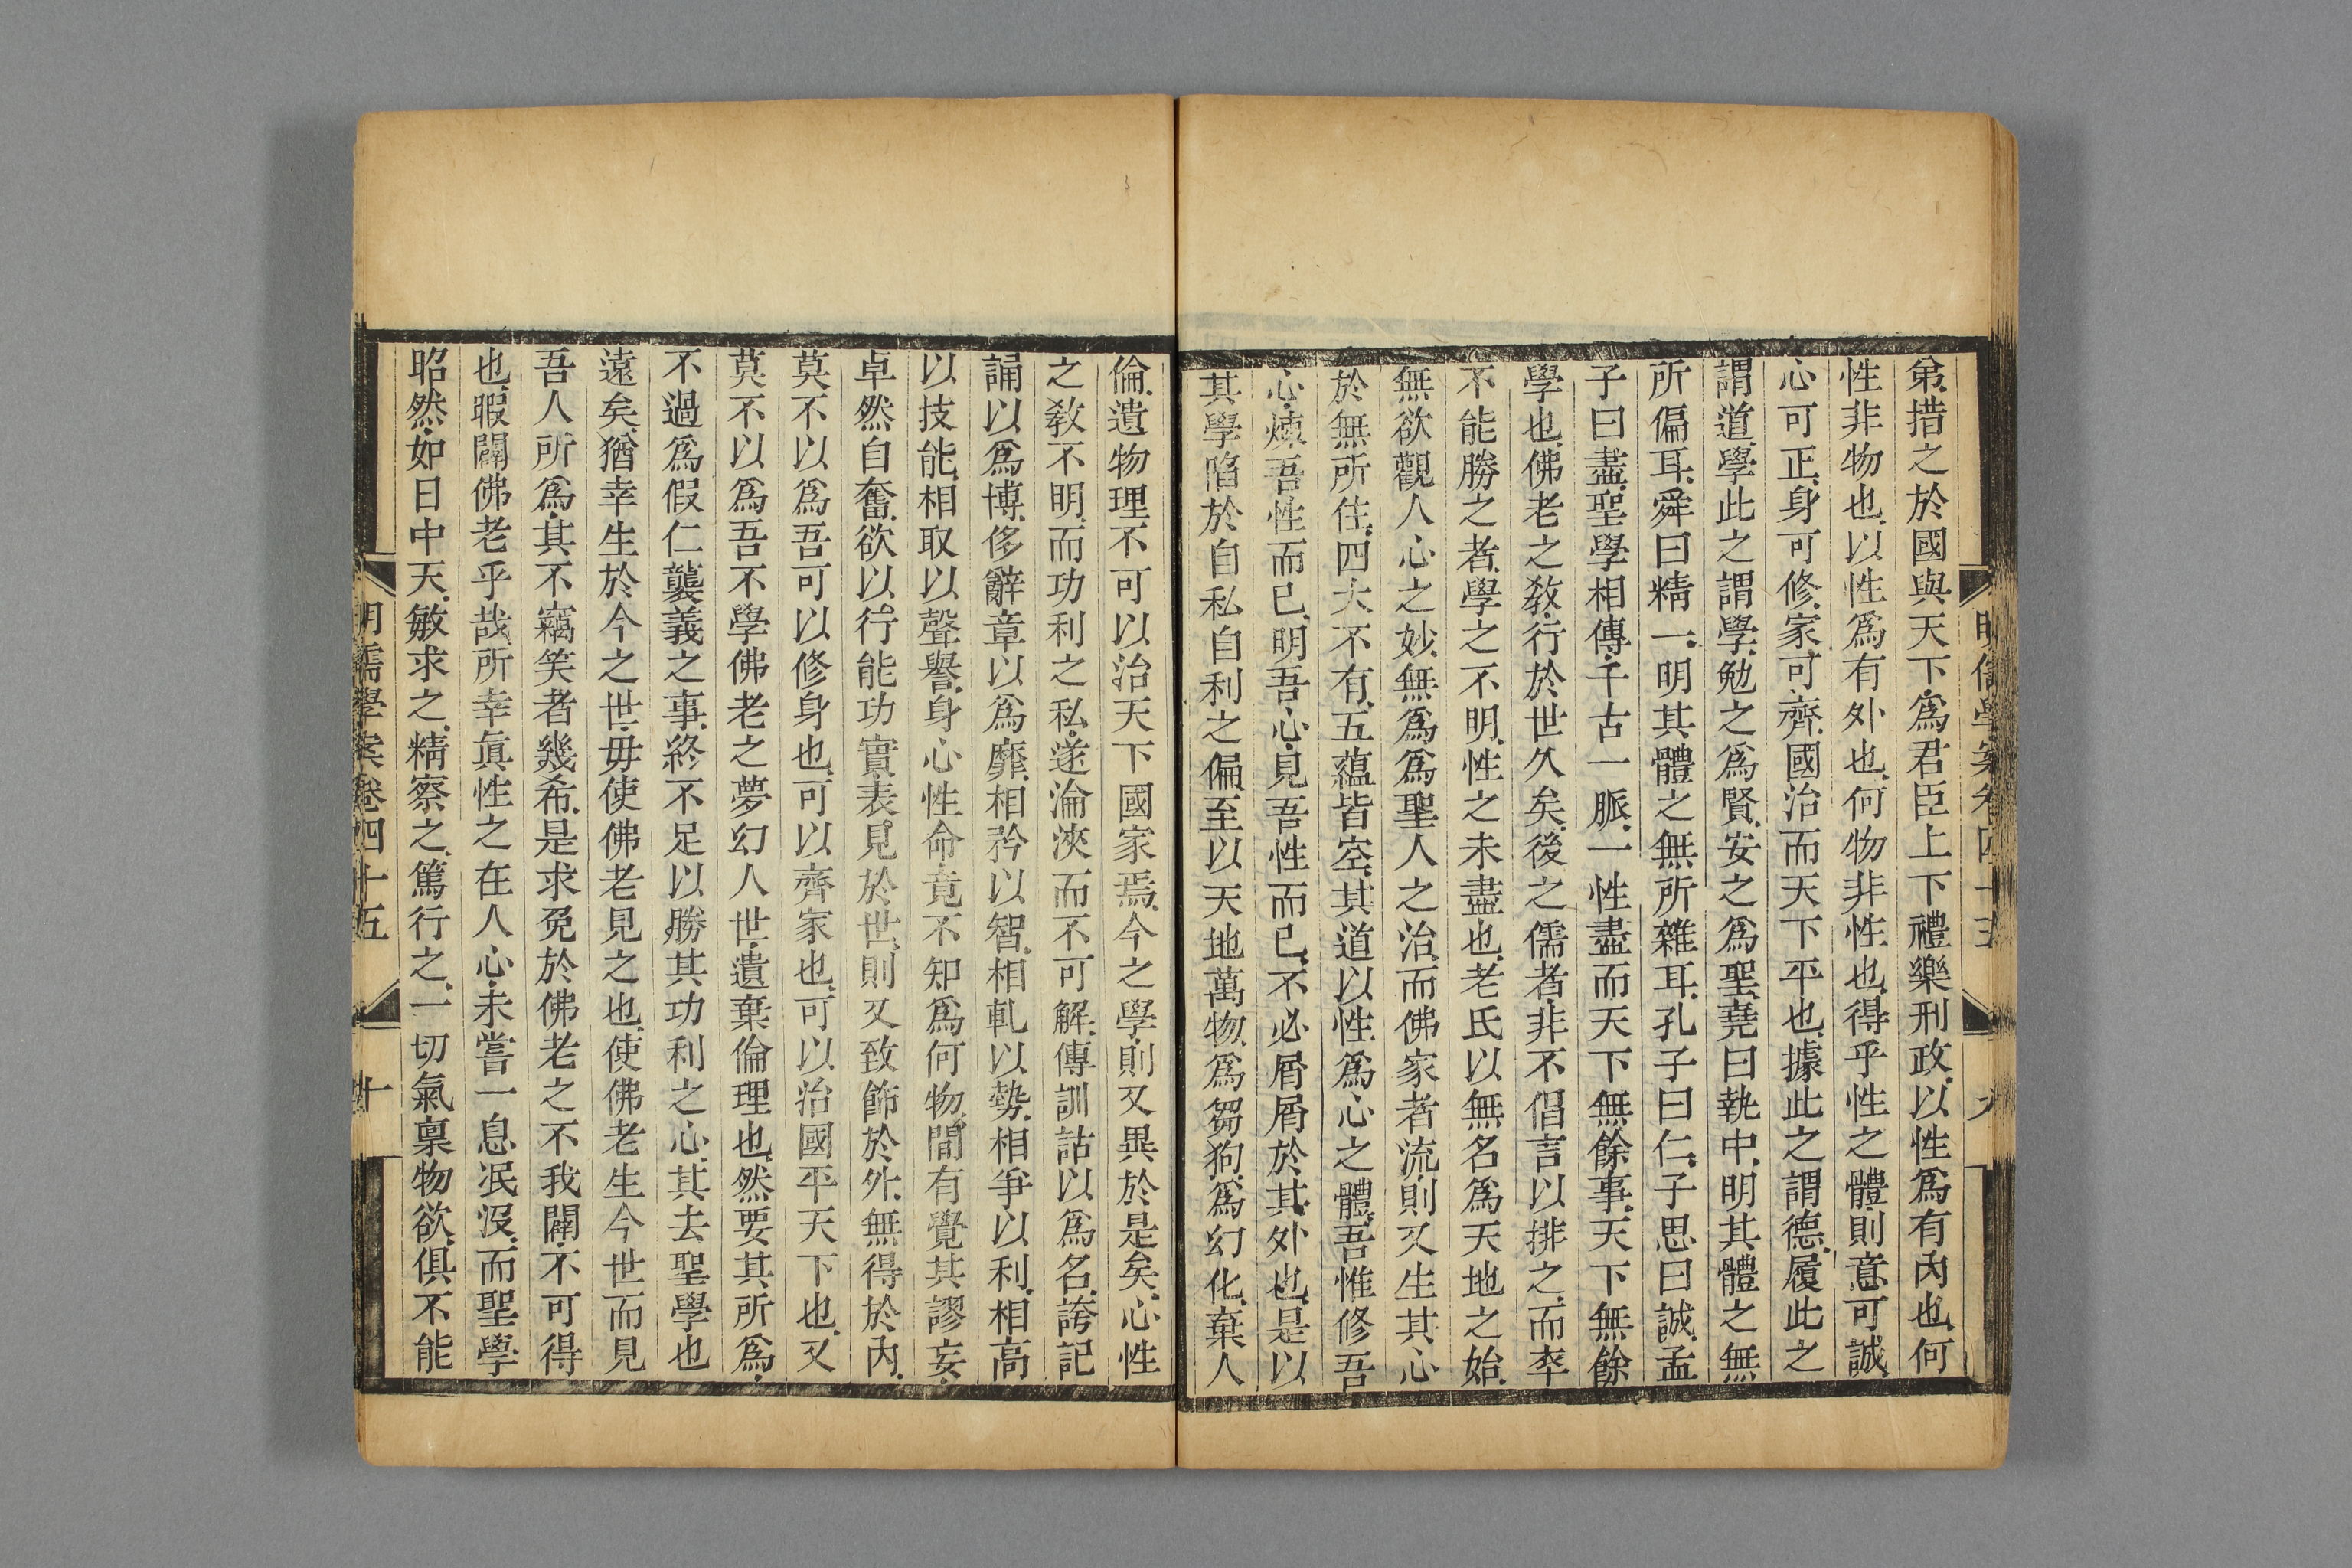 明儒學案卷四十五
九
弟、措之於國與天下、爲君臣上下禮樂刑政、以性爲有內也、何
性非物也、以性爲有外也、何物非性也、得乎性之體、則意可誠
心可正、身可修、家可齊、國治而天下平也、據此之謂德、履此之
謂道、學此之謂學、勉之爲賢、安之爲聖、堯曰執中、明其體之無
所偏耳、舜曰精一、明其體之無所雜耳、孔子曰仁、子思曰誠、孟
子曰盡、聖學相傳、千古一脈、一性盡而天下無餘事、天下無餘
學也、佛老之教、行於世久矣、後之儒者、非不倡言以排之、而卒
不能勝之者、學之不明、性之未盡也、老氏以無名爲天地之始、
無欲觀人心之妙、無爲爲聖人之治、而佛家者流、則又生其心
於無所住、四大不有、五蘊皆空、其道以性爲心之體、吾惟修吾
心、煉吾性而已、明吾心、見吾性而已、不必屑屑於其外也、是以
其學陷於自私自利之偏、至以天地萬物、爲芻狗、爲幻化、棄人
倫、遺物理、不可以治天下國家焉、今之學、則又異於是矣、心性
之教不明、而功利之私、遂淪浹而不可解、傳訓詁以爲名、誇記
誦以爲博、侈辭章以爲靡、相矜以智、相軋以勢、相爭以利、相高
以技能、相取以聲譽、身心性命竟不知爲何物、間有覺其謬妄、
卓然自奮、欲以行能功實、表見於世、則又致飾於外、無得於內、
莫不以爲吾可以修身也、可以齊家也、可以治國平天下也、又
莫不以爲吾不學佛老之夢幻人世、遺棄倫理也、然要其所爲、
不過爲假仁襲義之事、終不足以勝其功利之心、其去聖學也
遠矣、猶幸生於今之世、毋使佛老見之也、使佛老生今世而見
吾人所爲、其不竊笑者幾希、是求免於佛老之不我闢、不可得
也、暇闢佛老乎哉、所幸眞性之在人心、未嘗一息泯沒、而聖學
昭然、如日中天、敏求之、精察之、篤行之、一切氣稟物欲、俱不能
明儒學案卷四十五
十